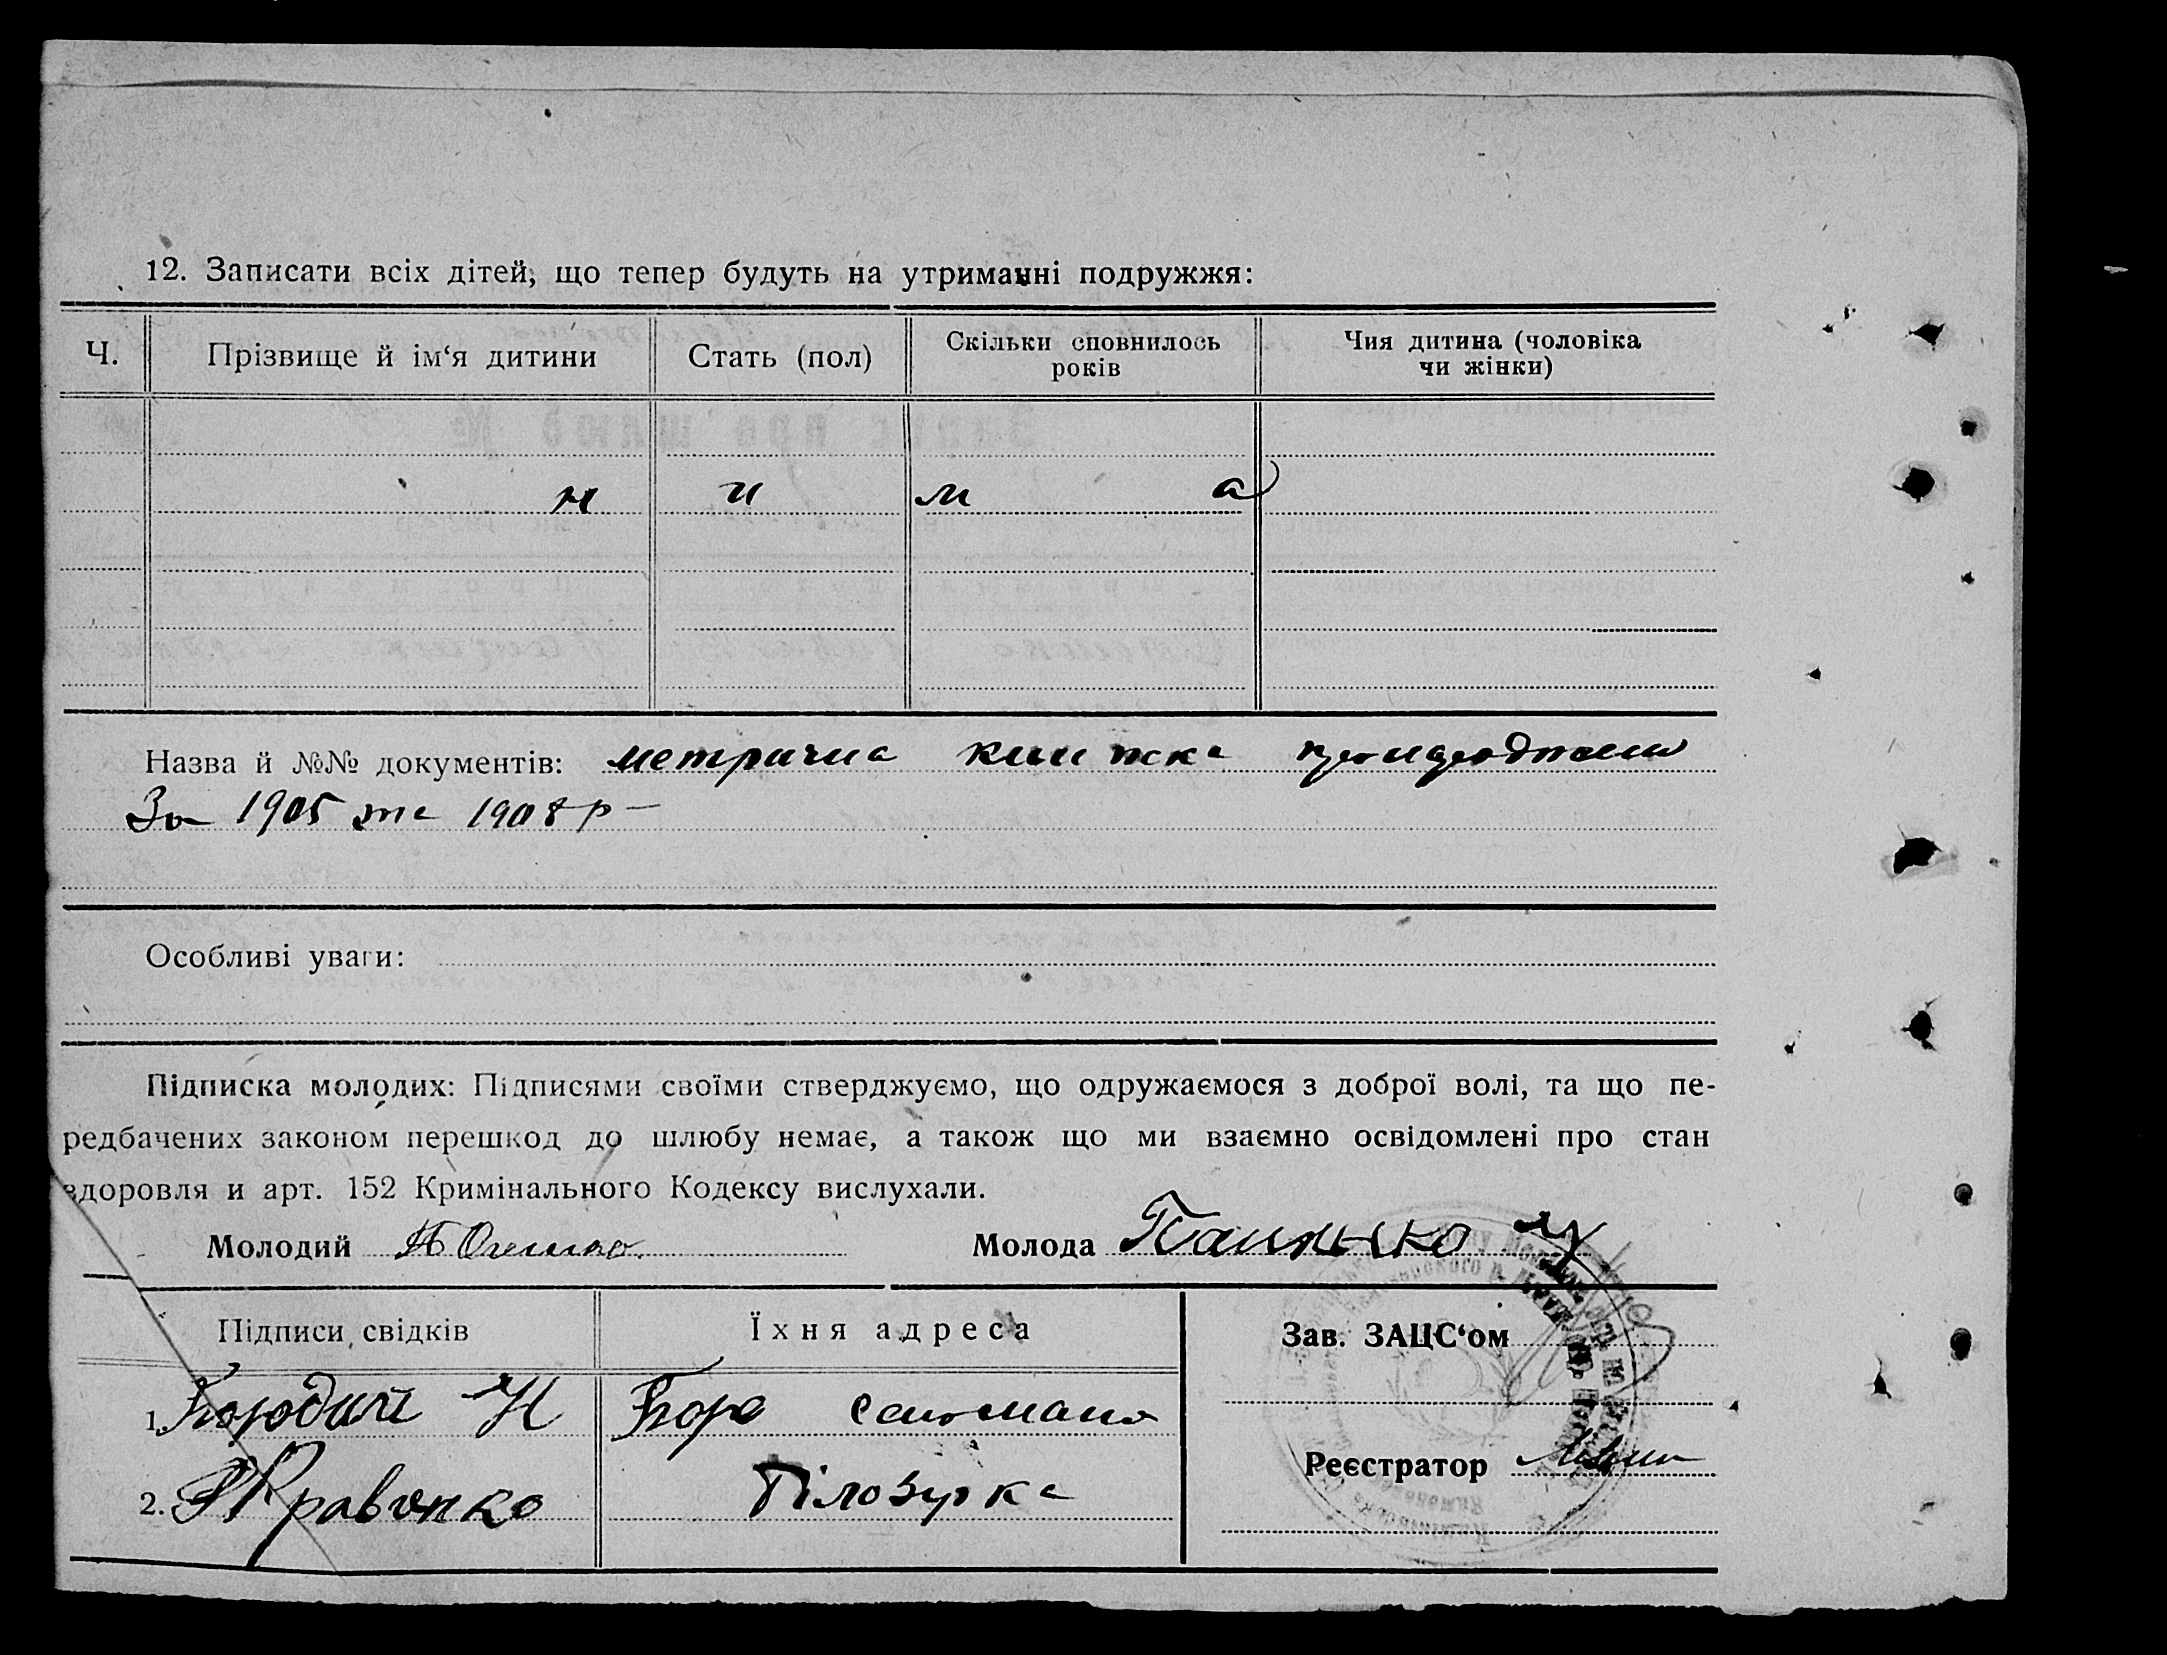 12. Записати всіх дітей, що тепер будуть на утриманні подружжя:
Ч. Прізвище й ім‘я дитини Стать (пол) Скільки сповнилось років Чия дитина (чоловіка чи жінки)
н и м а
Назва й №№ документів: метрична книжка
За 1905 та 1908 р
Особливі уваги:
Підписка молодих: Підписями своїми стверджуємо, що одружаємося з доброї волі, та що пе-
редбачених законом перешкод до шлюбу немає, а також що ми взаємно освідомлені про стан
здоровля и арт. 152 Кримінального Кодексу вислухали.
Молодий Молода
Підписи свідків Їхня адреса Зав. ЗАЦС‘ом
1.
2. Кравченко Білозірка
Реєстратор